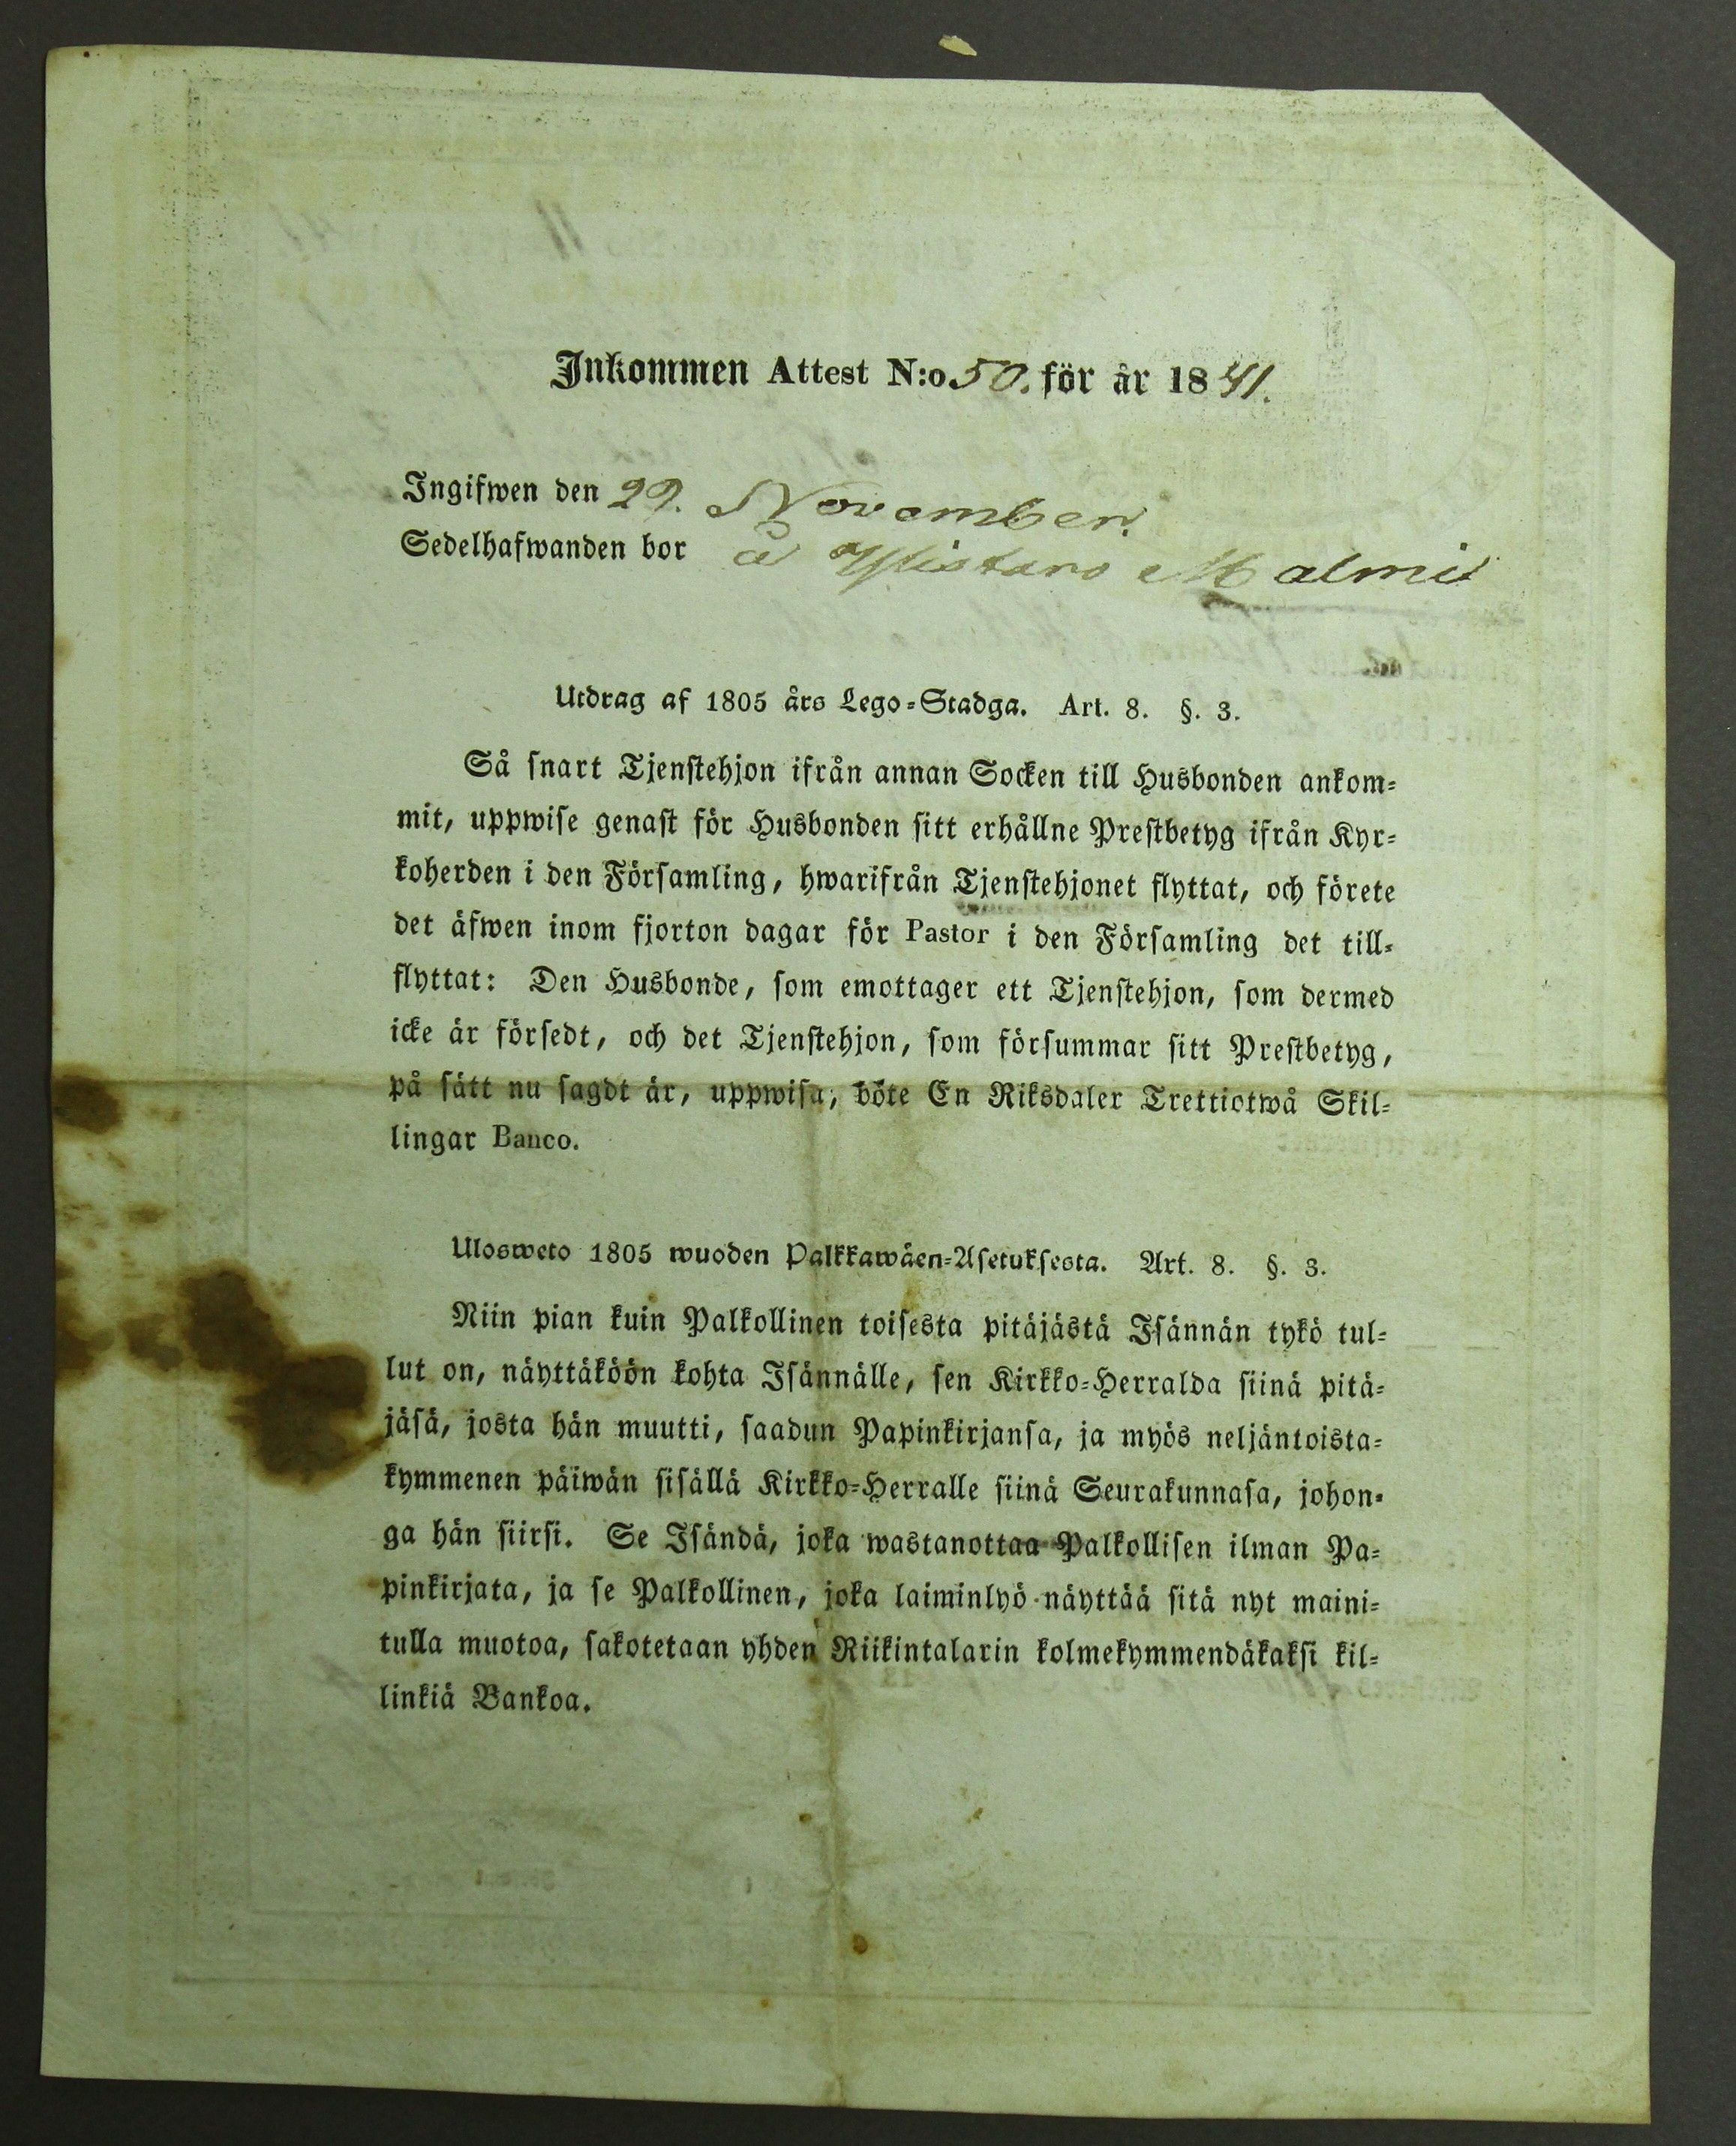 Inkommen Attest N:o 50. för år 1841.
Ingifwen den 29. November.
Sedelhafwanden bor å Malmi
Utdrag af 1805 års Lego-Stadga. Art. 8. §. 3.
Så snart Tjenstehjon ifrån annan Socken till Husbonden ankom-
mit, uppwise genast för Husbonden sitt erhållne Prestbetyg ifrån Kyr-
koherden i den Församling, hwarifrån Tjenstehjonet flyttat, och förete
det äfwen inom fjorton dagar för Pastor i den Församling det till-
flyttat: Den Husbonde, som emottager ett Tjenstehjon, som dermed
icke är försedt, och det Tjenstehjon, som försummar sitt Prestbetyg,
på sätt nu sagdt är, uppwisa, böte En Riksdaler Trettiotwå Skil-
lingar Banco.
Ulosweto 1805 wuoden Palkkawäen-Asetuksesta. Art. 8. §. 3.
Niin pian kuin Palkollinen toisesta pitäjästä Isännän tykö tul-
lut on, näyttäköön kohta Isännälle, sen Kirkko-Herralda siinä pitä-
jäsä, josta hän muutti, saadun Papinkirjansa, ja myös neljäntoista-
kymmenen päiwän sisällä Kirkko-Herralle siinä Seurakunnasa, johon-
ga hän siirsi. Se Isändä, joka wastanottaa Palkollisen ilman Pa-
pinkirjata, ja se Palkollinen, joka laiminlyö näyttää sitä nyt maini-
tulla muotoa, sakotetaan yhden Riikintalarin kolmekymmendäkaksi kil-
linkiä Bankoa.